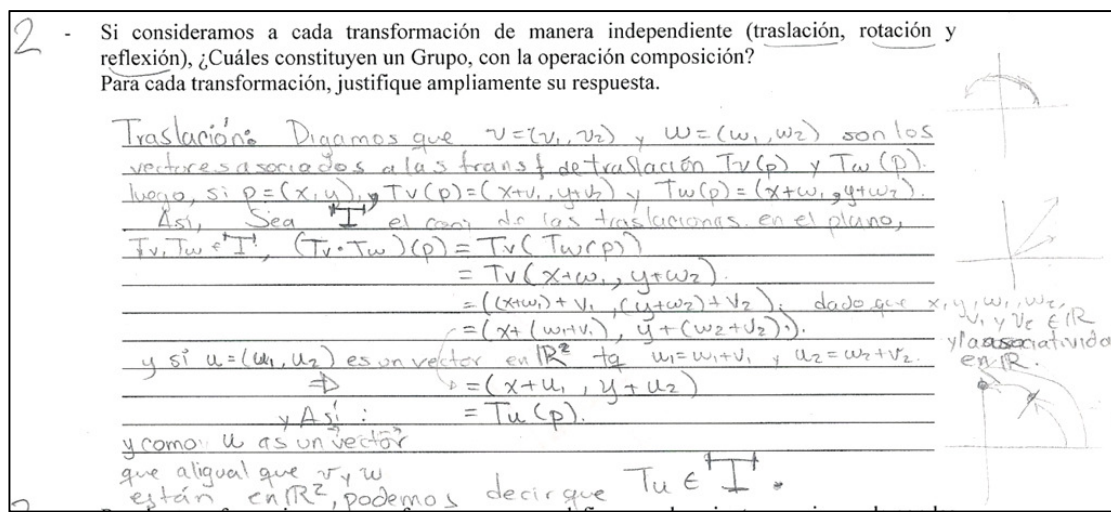 2 - Si consideramos a cada transformación de manera independiente (traslación, rotación y
reflexión), ¿Cuáles constituyen un Grupo, con la operación composición?
Para cada transformación, justifique ampliamente su respuesta.
Traslación: Digamos que v=(v₁, v₂) y w=(w₁, w₂) son los
vectores asociados a las transf de traslación Tv(p) y Tw(p).
luego, si p=(x,y), Tv(p)=(x+v₁, y+v₂) y Tw(p)=(x+w₁, y+w₂).
Así, Sea T el conj de las traslaciones en el plano,
Tv, Tw ∈ T, (Tv∘Tw)(p) = Tv(Tw(p))
= Tv(x+w₁, y+w₂)
= ((x+w₁)+v₁, (y+w₂)+v₂); dado que x, y, w₁, w₂,
v₁ y v₂ ∈ ℝ
= (x+(w₁+v₁), y+(w₂+v₂)).
y la asociativida
en ℝ.
y si u=(u₁, u₂) es un vector en ℝ² tq u₁=w₁+v₁ y u₂=w₂+v₂.
⇒ = (x+u₁, y+u₂)
y Así: = Tu(p).
y como u es un vector
que al igual que v y w
están en ℝ², podemos decir que Tu ∈ T.